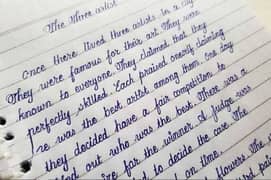 The Three artist
Once there lived three artists in a city
They were famous for their art. They were
known to everyone. They claimed that they
perfectly skilled. Each praised oneself claiming
re was the best artist among them. One day
they decided have a fair competition to
find out who was the best. There was a
ize for the winner. A judge was
ed to decide the case. The
on time.
flowers. The